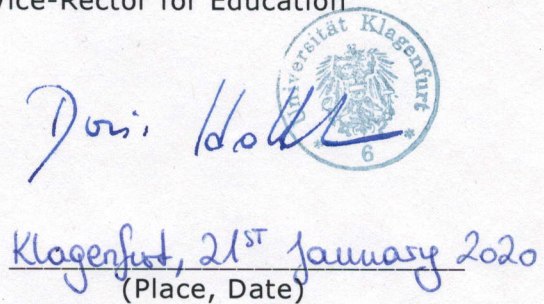 Vice-Rector for Education
Universität Klagenfurt
* 6 *
Doris
Klagenfurt, 21ST January 2020
(Place, Date)